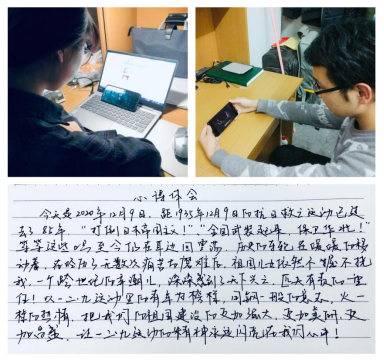 心得体会
今天是2020年12月9日，距1935年12月9日的抗日救亡运动已过
去了85年，“打倒日本帝国主义！”“全国武装起来，保卫华北！”
等等这些口号至今仍在耳边回荡，历史的车轮在缓缓的移
动着，在经历了无数次痛苦和磨难后，祖国儿女依然不屈不挠
我，一个跨世纪的年轻人，深深感到了天下兴亡，匹夫有责的
任！以一二九运动里的青年为榜样，同钢一般的意志，火一
样的热情，把我们的祖国建设的更加强大，更加美丽，更
加昌盛，让一二九运动的精神永远闪亮在我们心中！